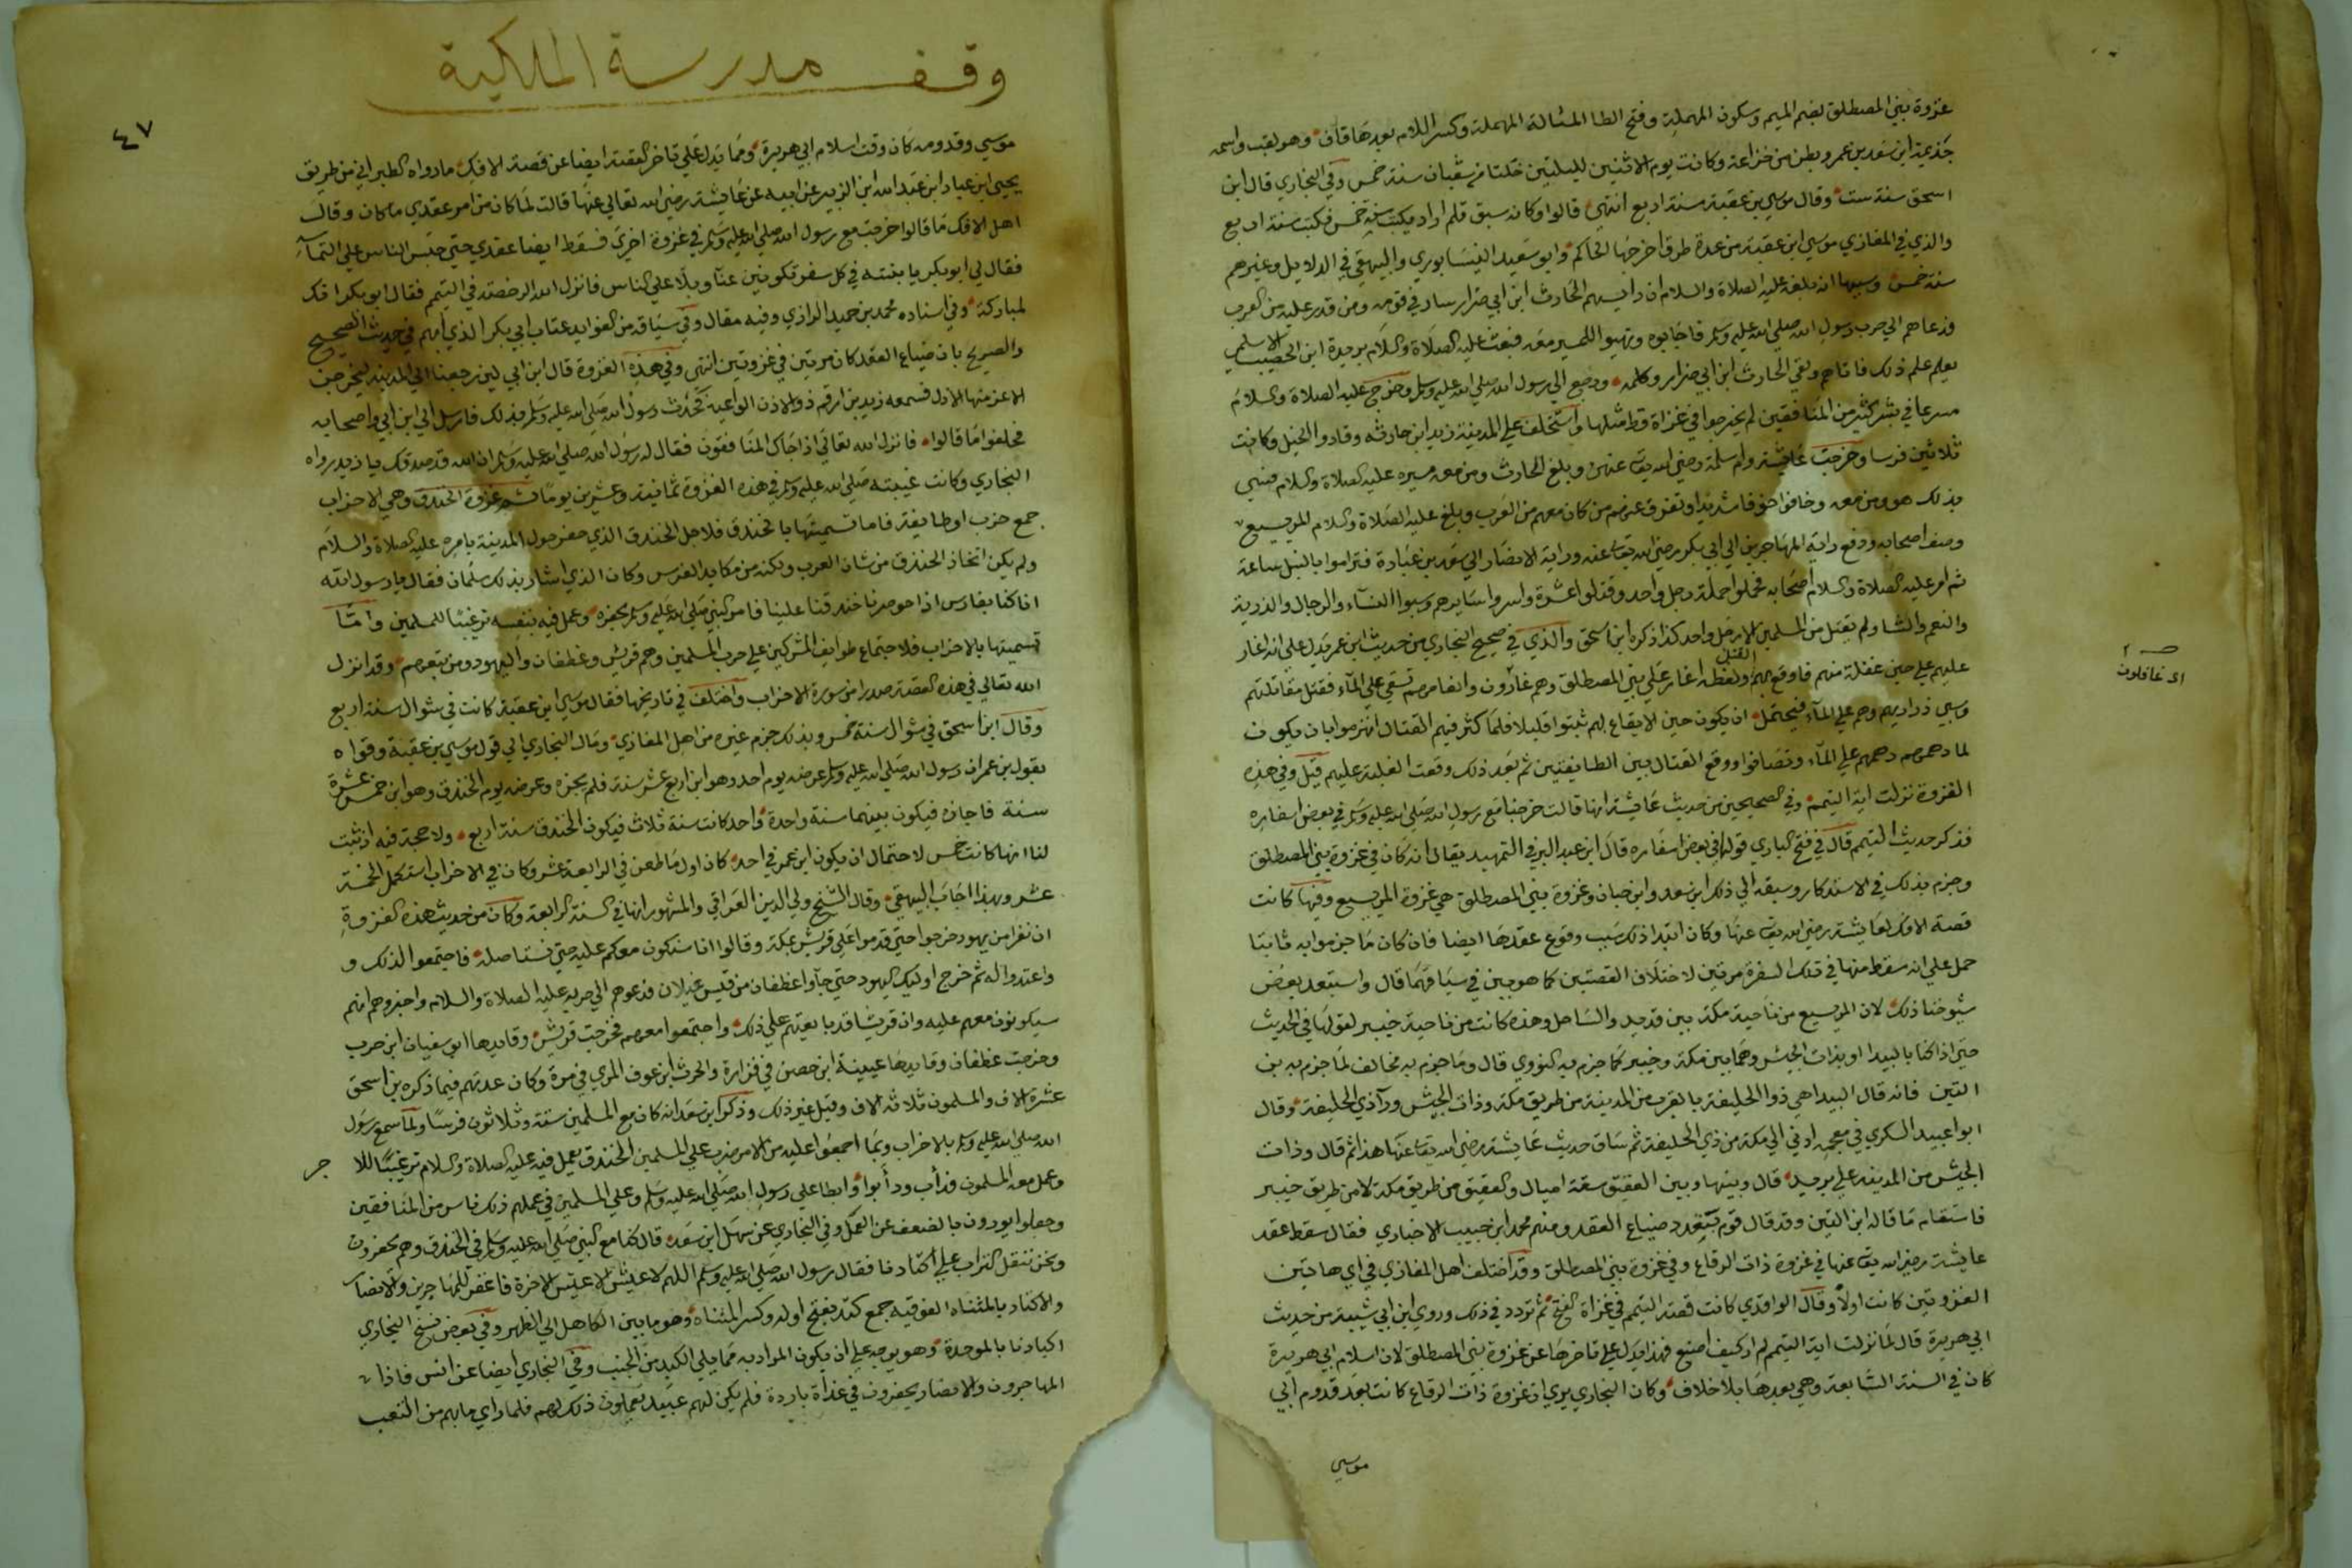 غزوة بني المصطلق بضم الميم وسكون المهملة وفتح الطا المشالة المهملة وكسر اللام بعدها قاف وهو لقب واسمه
جذيمة ابن سعد بن عمرو بطن من خزاعة وكانت يوم الاثنين لليلتين خلتا من شعبان سنة خمس وفي البخاري قال ابن
اسحق سنة ست وقال موسي بن عقبة سنة اربع انتهي قالوا وكانه سبق قلم اراد يكتب سنة خمس فكتب سنة اربع
والذي في المغازي موسي ابن عقبة من عدة طرق اخرجها الحاكم وابو سعيد النيسابوري والبيهقي في الدلايل وغيرهم
سنة خمس وسببها انه بلغه عليه الصلاة والسلام ان راسهم الحارث ابن ابي ضرار سار في قومه ومن قدر عليه من العرب
فدعاهم الي حرب رسول الله صلي الله عليه وسلم فاجابوه وتهيوا للمسير معه فبعث عليه الصلاة والسلام بريدة ابن الحصيب الاسلمي
يعلم علم ذلك فاتاهم ولقي الحارث ابن ابي ضرار وكلمه ورجع الي رسول الله صلي الله عليه وسلم وخرج عليه الصلاة والسلام
مسرعا في بشر كثير من المنافقين لم يخرجوا في غزاة قط مثلها واستخلف علي المدينة زيد ابن حارثه وقادوا الخيل وكانت
ثلاثين فرسا وخرجت عايشة وام سلمة رضي الله تعا عنهن وبلغ الحارث ومن معه مسيره عليه الصلاة والسلام فسي
بذلك هو ومن معه وخافوا خوفا شديدا وتفرق عنهم من كان معهم من العرب وبلغ عليه الصلاة والسلام المريسيع
وصف اصحابه ودفع راية المهاجرين الي ابي بكر رضي الله تعا عنه وراية الانصار الي سعد بن عبادة فتراموا بالنبل ساعة
ثم امر عليه الصلاة والسلام اصحابه فحملوا حملة رجل واحد وقتلوا عشرة واسروا سايرهم وسبوا النساء والرجال والذرية
والنعم والشا ولم يقتل من المسلمين الا رجل واحد كذا ذكره ابن اسحق والذي في صحيح البخاري من حديث ابن عمر يدل علي انه اغار
عليهم علي حين غفلة منهم فاوقع بهم القتل ولفظه اغار علي بني المصطلق وهم غارون وانعامهم تسقي علي الماء فقتل مقاتلتهم
وسبي ذراريهم وهم علي الماء فيحتمل ان يكون حين الايقاع بهم ثبتوا قليلا فلما كثر فيهم القتال انهزموا بان يكون
لما دهمهم دهمهم علي الماء وتصافوا ووقع القتال بين الطايفتين ثم بعد ذلك وقعت الغلبة عليهم قيل وفي هذه
الغزوة نزلت اية التيمم وفي الصحيحين من حديث عايشة انها قالت خرجنا مع رسول الله صلي الله عليه وسلم في بعض اسفاره
فذكر حديث التيمم قال في فتح الباري قولها في بعض اسفاره قال ابن عبد البر في التمهيد يقال انه كان في غزوة بني المصطلق
وجزم بذلك في الاستذكار وسبقه الي ذلك ابن سعد وابن حبان وغزوة بني المصطلق هي غزوة المريسيع وفيها كانت
قصة الافك لعايشة رضي الله تعا عنها وكان ابتدا ذلك سبب وقوع عقدها ايضا فان كان ما جزموا به ثابتا
حمل علي انه سقط منها في تلك السفرة مرتين لاختلاف القصتين كما هو بين في سياقهما قال واستبعد بعض
شيوخنا ذلك لان المريسيع من ناحية مكة بين قديد والساحل وهذه كانت من ناحية خيبر لقولها في الحديث
حتي اذا كنا بالبيدا او بذات الجيش وهما بين مكة وخيبر كما جزم به النووي قال وما جزم به مخالف لما جزم به بن
التين فانه قال البيدا هي ذوا الحليفة بالقرب من المدينة من طريق مكة وذات الجيش ورآ ذي الحليفة وقال
ابوا عبيد السكري في معجمه ادني الي مكة من ذي الحليفة ثم ساق حديث عايشة رضي الله تعا عنها هذا ثم قال وذات
الجيش من المدينة علي بريد قال وبينها وبين العقيق سبعة اميال والعقيق من طريق مكة لا من طريق خيبر
فاستقام ما قاله ابن التين وقد قال قوم بتعدد ضياع العقد ومنهم محمد ابن حبيب الاخباري فقال سقط عقد
عايشة رضي الله تعا عنها في غزوة ذات الرقاع وفي غزوة بني المصطلق وقد اختلف اهل المغازي في اي هاتين
الغزوتين كانت اولا وقال الواقدي كانت قصة التيمم في غزاة الفتح ثم تردد في ذلك وروي ابن ابي شيبة من حديث
ابي هريرة قال لما نزلت اية التيمم لم ادر كيف اصنع فهذا يدل علي تاخرها عن غزوة بني المصطلق لان اسلام ابي هريرة
كان في السنة السابعة وهي بعدها بلا خلاف وكان البخاري يري ان غزوة ذات الرقاع كانت بعد قدوم ابي
موسي
اي غافلون
وقف مدرسة الملكية
٤٧
موسي وقدومه كان وقت اسلام ابي هريرة ومما يدل علي تاخر القصة ايضا عن قصة الافك ما رواه الطبراني من طريق
يحيي ابن عباد ابن عبد الله ابن الزبير عن ابيه عن عايشة رضي الله تعالي عنها قالت لما كان من امر عقدي ما كان وقال
اهل الافك ما قالوا خرجت مع رسول الله صلي الله عليه وسلم في غزوة اخري فسقط ايضا عقدي حتي حبس الناس علي التماسه
فقال لي ابو بكر يا بنته في كل سفر تكونين عنآ وبلا علي الناس فانزل الله الرخصة في التيمم فقال ابو بكر انك
لمباركة وفي اسناده محمد بن حميد الرازي وفيه مقال وفي سياقه من الفوايد عتاب ابي بكر الذي ابهم في حديث الصحيح
والصريح بان ضياع العقد كان مرتين في غزوتين انتهي وفي هذه الغزوة قال ابن ابي لين رجعنا الي المدينة ليخرجن
الاعز منها الاذل فسمعه زيد بن ارقم ذو الاذن الواعية فحدث رسول الله صلي الله عليه وسلم بذلك فارسل الي ابن ابي واصحابه
فحلفوا ما قالوا فانزل الله تعالي اذا جاك المنافقون فقال له رسول الله صلي الله عليه وسلم ان الله قد صدقك يا زيد رواه
البخاري وكانت غيبته صلي الله عليه وسلم في هذه الغزوة ثمانية وعشرين يوما ثم غزوة الخندق وهي الاحزاب
جمع حزب او طايفة فاما تسميتها بالخندق فلاجل الخندق الذي حفر حول المدينة بامره عليه الصلاة والسلام
ولم يكن اتخاذ الخندق من شان العرب ولكنه من مكايد الفرس وكان الذي اشار بذلك سلمان فقال يا رسول الله
انا كنا بفارس اذا حوصرنا خندقنا علينا فامر النبي صلي الله عليه وسلم بحفره وعمل فيه بنفسه ترغيبا للمسلمين واما
تسميتها بالاحزاب فلاجتماع طوايف المشركين علي حرب المسلمين وهم قريش وغطفان واليهود ومن تبعهم وقد انزل
الله تعالي في هذه القصة صدرا من سورة الاحزاب واختلف في تاريخها فقال موسي ابن عقبة كانت في شوال سنة اربع
وقال ابن اسحق في شوال سنة خمس وبذلك جزم غيره من اهل المغازي ومال البخاري الي قول موسي بن عقبة وقواه
بقول بن عمر ان رسول الله صلي الله عليه وسلم عرضه يوم احد وهو ابن اربع عشر سنة فلم يجزه وعرضه يوم الخندق وهو ابن خمس عشرة
سنة فاجازه فيكون بينهما سنة واحدة واحد كانت سنة ثلاث فيكون الخندق سنة اربع ولا حجة فيه اذ ثبت
لنا انها كانت خمس لاحتمال ان يكون ابن عمر في احد كان اول ما طعن في الرابعة عشر وكان في الاحزاب استكمل الخمسة
عشر وبهذا اجاب البيهقي وقال الشيخ ولي الدين العراقي والمشهور انها في السنة الرابعة وكان من حديث هذه الغزوة
ان نفرا من يهود خرجوا حتي قدموا علي قريش بمكة وقالوا انا سنكون معكم عليه حتي نستاصله فاجتمعوا لذلك و
واعتدوا له ثم خرج اوليك اليهود حتي جآوا غطفان من قيس غيلان فدعوهم الي حربه عليه الصلاة والسلام واخبروهم انهم
سيكونون معهم عليه وان قريشا قد بايعتهم علي ذلك واجتمعوا معهم فخرجت قريش وقايدها ابو سفيان ابن حرب
وخرجت غطفان وقايدها عيينة ابن حصن في فزارة والحرث ابن عوف المري في مرة وكان عدتهم فيما ذكره بن اسحق
عشرة الاف والمسلمون ثلاثة الاف وقيل غير ذلك وذكر ابن سعد انه كان مع المسلمين ستة وثلاثون فرسا ولما سمع رسول
الله صلي الله عليه وسلم بالاحزاب وبما اجمعوا عليه من الامر ضرب علي المسلمين الخندق يعمل فيه عليه الصلاة والسلام ترغيبا للا
جر
وعمل معه المسلمون فدأب ودأبوا وابطا علي رسول الله صلي الله عليه وسلم وعلي المسلمين في عملهم ذلك ناس من المنافقين
وجعلوا يورون بالضعف عن العمل وفي البخاري عن سهل ابن سعد قال كنا مع النبي صلي الله عليه وسلم في الخندق وهم يحفرون
ونحن ننقل التراب علي اكتادنا فقال رسول الله صلي الله عليه وسلم اللهم لا عيش الا عيش الاخرة فاغفر للمهاجرين والانصار
والاكتاد بالمثناه الفوقيه جمع كتد بفتح اوله وكسر المثناه وهو ما بين الكاهل الي الظهر وفي بعض نسخ البخاري
اكبادنا بالموحدة وهو يوجه علي ان يكون المراد به مما يلي الكبد من الجنب وفي البخاري ايضا عن انس فاذا
المهاجرون والانصار يحفرون في غداة باردة فلم يكن لهم عبيد يعملون ذلك لهم فلما راي ما بهم من النصب